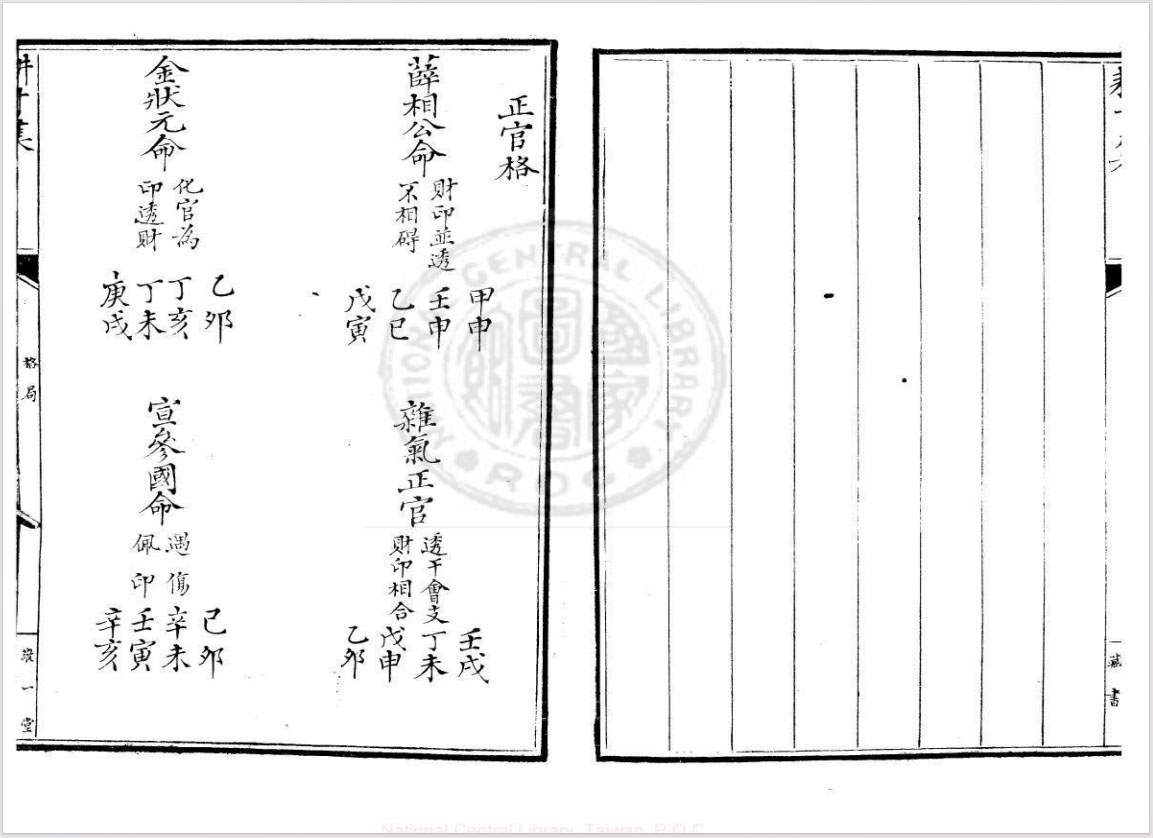 藏書
正官格
薛相公命
財印並透
不相碍
甲申
壬申
乙巳
戊寅
雜氣正官
透干會支
財印相合
壬戌
丁未
戊申
乙卯
金狀元命
化官為
印透財
乙卯
丁亥
丁未
庚戌
宣參國命
遇傷
佩印
己卯
辛未
壬寅
辛亥
格局
一堂
NATIONAL CENTRAL LIBRARY
R O C
National Central Library, Taiwan, R.O.C